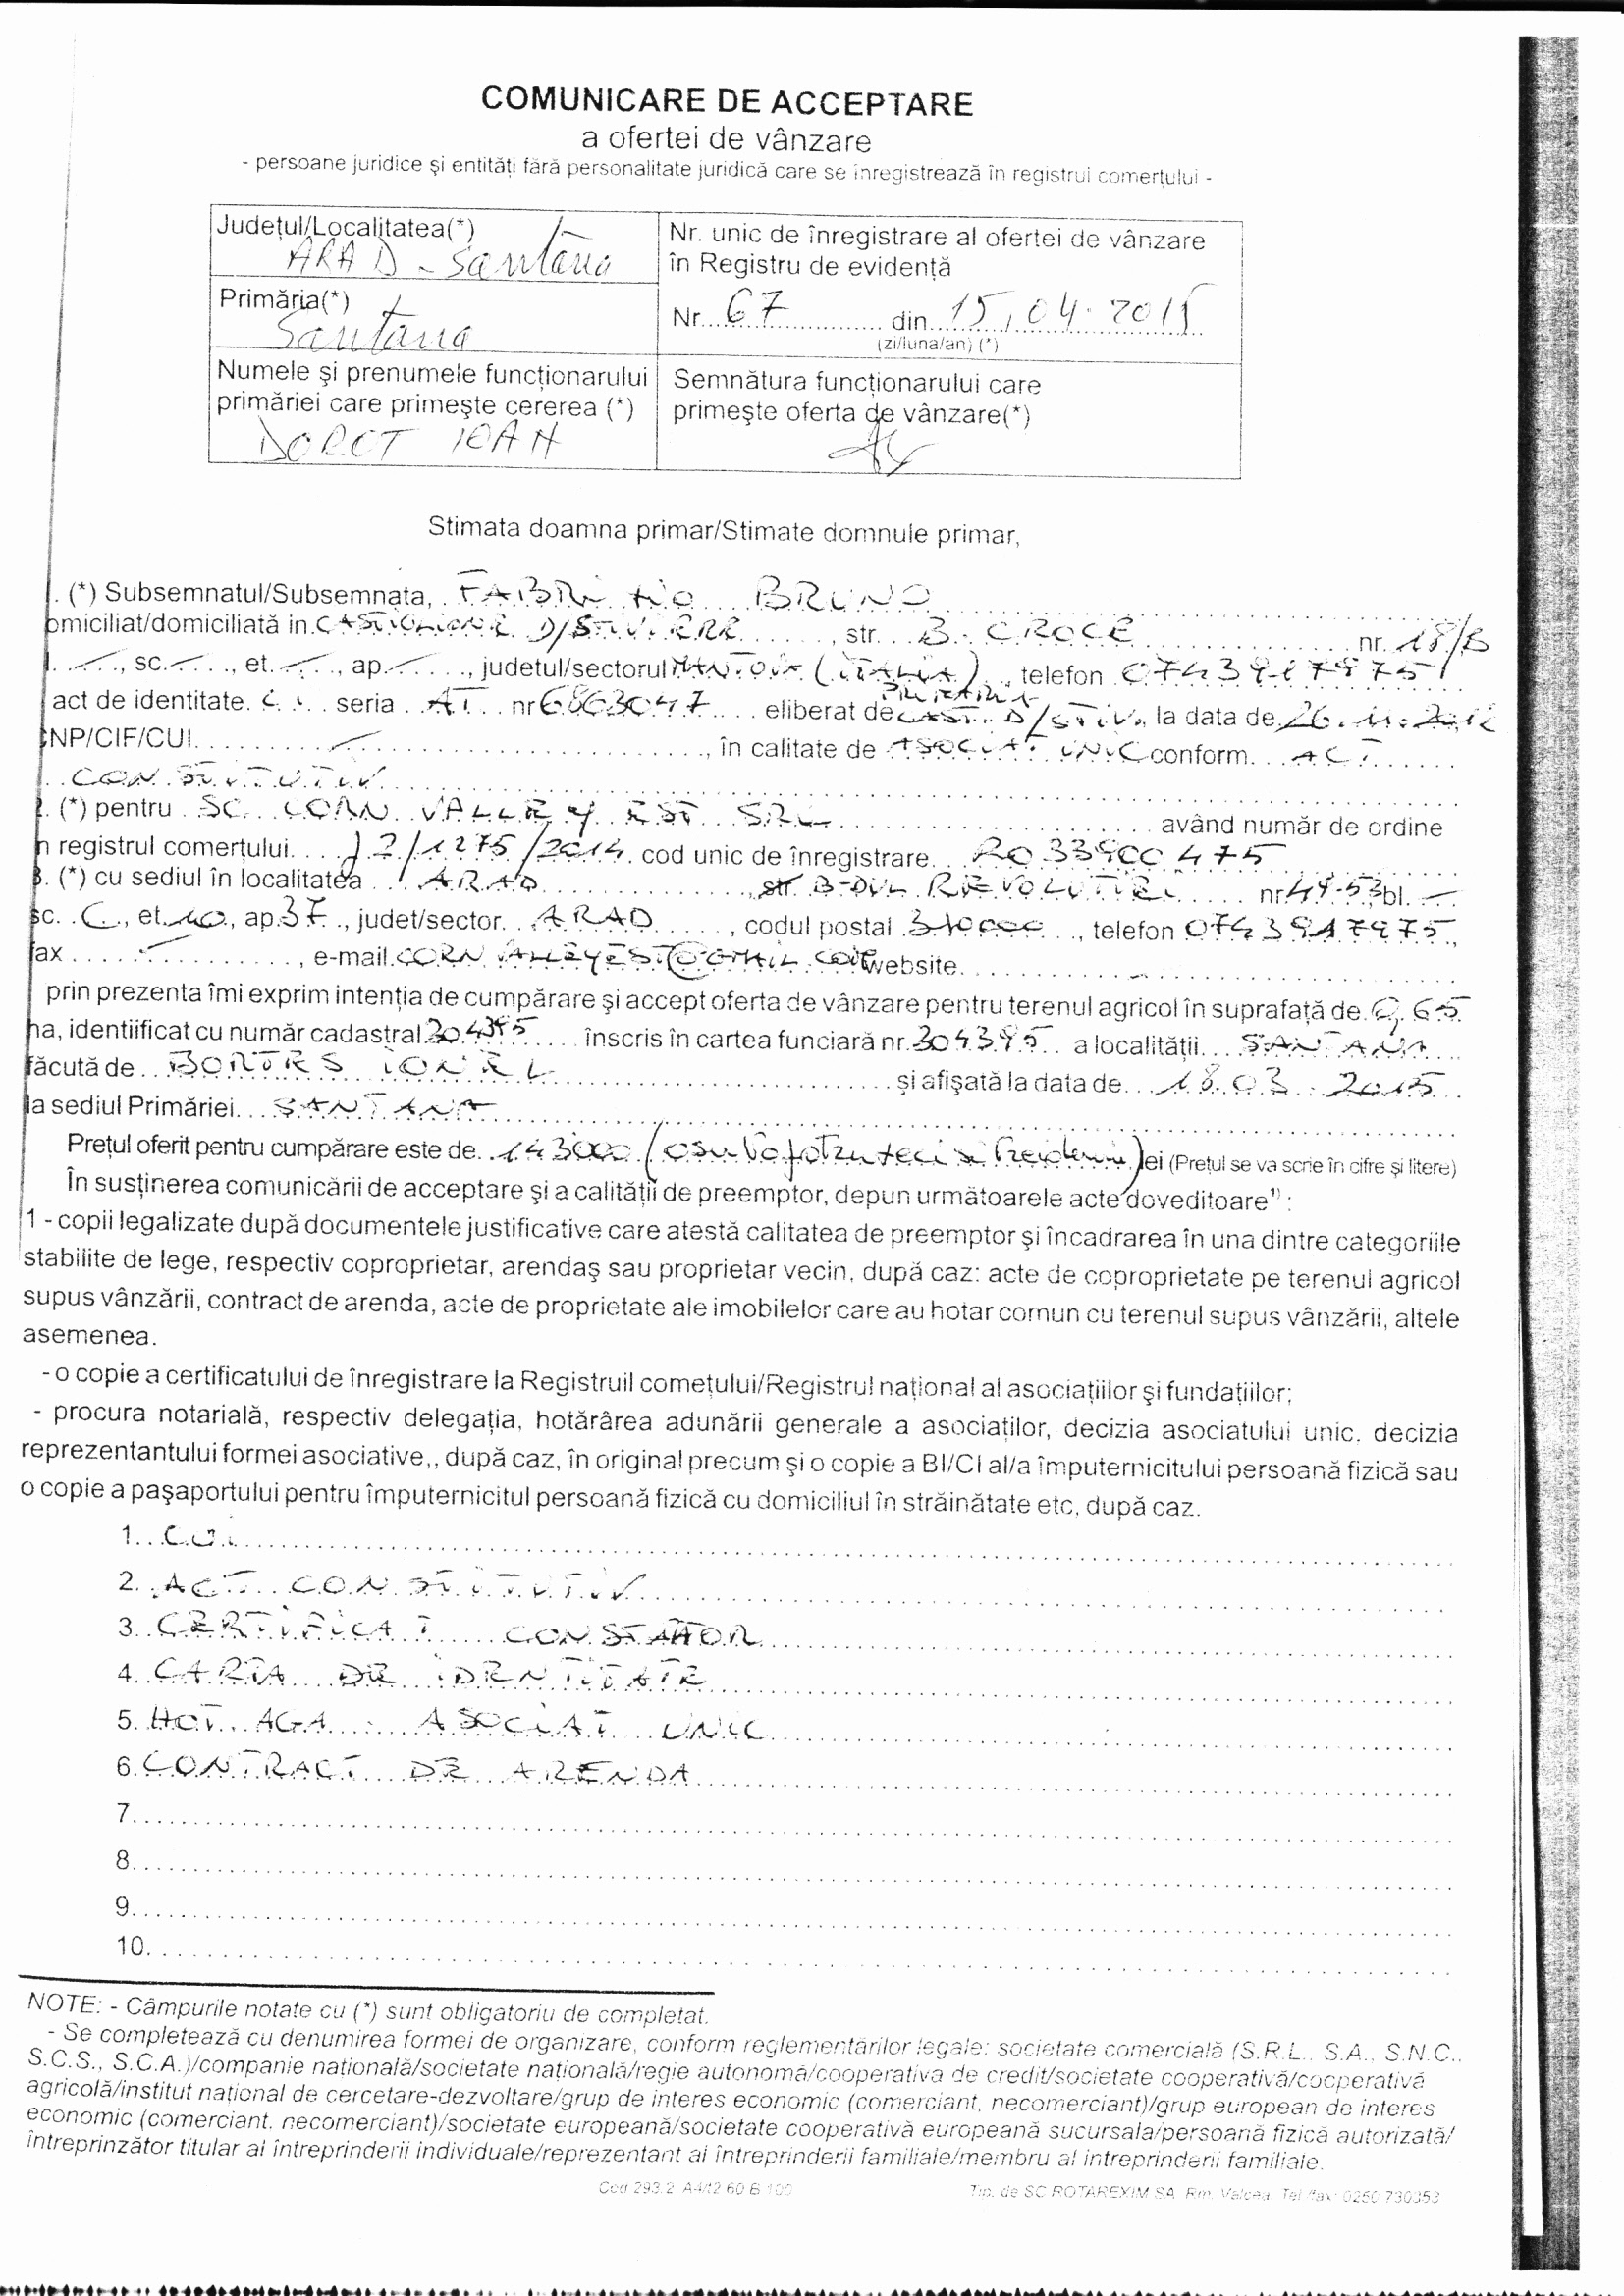 COMUNICARE DE ACCEPTARE
a ofertei de vânzare
- persoane juridice şi entităţi fără personalitate juridică care se înregistrează în registrul comerţului -
Judeţul/Localitatea(*)
ARAD - Santana
Nr. unic de înregistrare al ofertei de vânzare
în Registru de evidenţă
Primăria(*)
Santana
Nr. 67 din 15.04.2015
(zi/luna/an) (*)
Numele şi prenumele funcţionarului
primăriei care primeşte cererea (*)
DOROT IOAN
Semnătura funcţionarului care
primeşte oferta de vânzare(*)
Stimata doamna primar/Stimate domnule primar,
. (*) Subsemnatul/Subsemnata, BRUNO
omiciliat/domiciliată in CASTIGLIONE D/STIVIERE, str. B. CROCE nr. 18/B
, sc. , et. , ap. , judetul/sectorul MANTOVA (ITALIA), telefon 0743917975
act de identitate C.I. seria AT nr 6863047 eliberat de PRIMARIA CAST. D/STIV., la data de 26.11.2012
CNP/CIF/CUI , în calitate de ASOCIAT UNIC conform ACT
CONSTITUTIV
2. (*) pentru SC. CORN VALLEY EST SRL având număr de ordine
n registrul comerţului J2/1275/2014 cod unic de înregistrare RO 33900475
3. (*) cu sediul în localitatea ARAD, str. B-DUL REVOLUTIEI nr 49-53 bl. —
sc. C, et. 10, ap. 37, judet/sector ARAD, codul postal 310000, telefon 0743917975,
fax , e-mail CORNVALLEYEST@GMAIL.COM website
prin prezenta îmi exprim intenţia de cumpărare şi accept oferta de vânzare pentru terenul agricol în suprafaţă de 0,65
ha, identiificat cu număr cadastral 304395 înscris în cartea funciară nr. 304395 a localităţii SANTANA
făcută de BORTES IONEL şi afişată la data de 18.03.2015
la sediul Primăriei SANTANA
Preţul oferit pentru cumpărare este de 143000 lei (Preţul se va scrie în cifre şi litere)
În susţinerea comunicării de acceptare şi a calităţii de preemptor, depun următoarele acte doveditoare¹⁾ :
1 - copii legalizate după documentele justificative care atestă calitatea de preemptor şi încadrarea în una dintre categoriile
stabilite de lege, respectiv coproprietar, arendaş sau proprietar vecin, după caz: acte de coproprietate pe terenul agricol
supus vânzării, contract de arenda, acte de proprietate ale imobilelor care au hotar comun cu terenul supus vânzării, altele
asemenea.
- o copie a certificatului de înregistrare la Registruil comeţului/Registrul naţional al asociaţiilor şi fundaţiilor;
- procura notarială, respectiv delegaţia, hotărârea adunării generale a asociaţilor, decizia asociatului unic. decizia
reprezentantului formei asociative,, după caz, în original precum şi o copie a BI/CI al/a împuternicitului persoană fizică sau
o copie a paşaportului pentru împuternicitul persoană fizică cu domiciliul în străinătate etc, după caz.
1. CUI
2. ACT CONSTITUTIV
3. CERTIFICAT CONSTATATOR
4. CARTA DE IDENTITATE
5. HOT. AGA - ASOCIAT UNIC
6. CONTRACT DE ARENDA
7.
8.
9.
10.
NOTE: - Câmpurile notate cu (*) sunt obligatoriu de completat.
- Se completează cu denumirea formei de organizare, conform reglementărilor legale: societate comercială (S.R.L., S.A., S.N.C.,
S.C.S., S.C.A.)/companie naţională/societate naţională/regie autonomă/cooperativa de credit/societate cooperativă/cooperativă
agricolă/institut naţional de cercetare-dezvoltare/grup de interes economic (comerciant, necomerciant)/grup european de interes
economic (comerciant, necomerciant)/societate europeană/societate cooperativă europeană sucursala/persoană fizică autorizată/
întreprinzător titular al întreprinderii individuale/reprezentant al întreprinderii familiale/membru al intreprinderii familiale.
Cod 293.2 A4/t2 60 B 100 Tip. de SC ROTAREXIM SA Rm. Valcea Tel/fax: 0250 730353